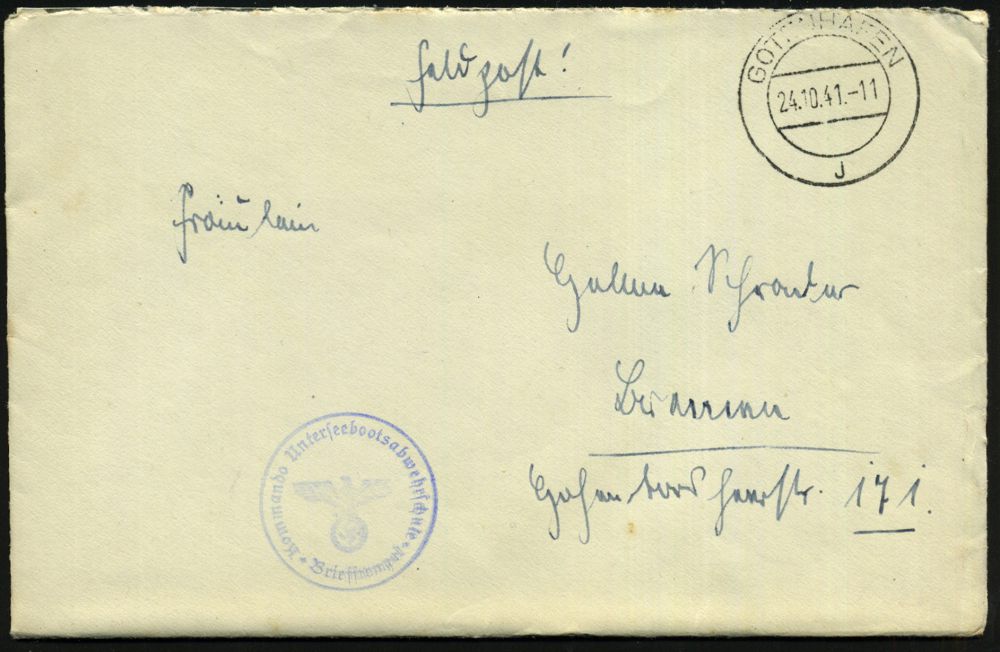 Feldpost!
GOTENHAFEN
24.10.41.-11
J
Fräulein
Schrader
Bremen
heerstr. 171.
Kommando Unterseebootsabwehrschule
Briefstempel